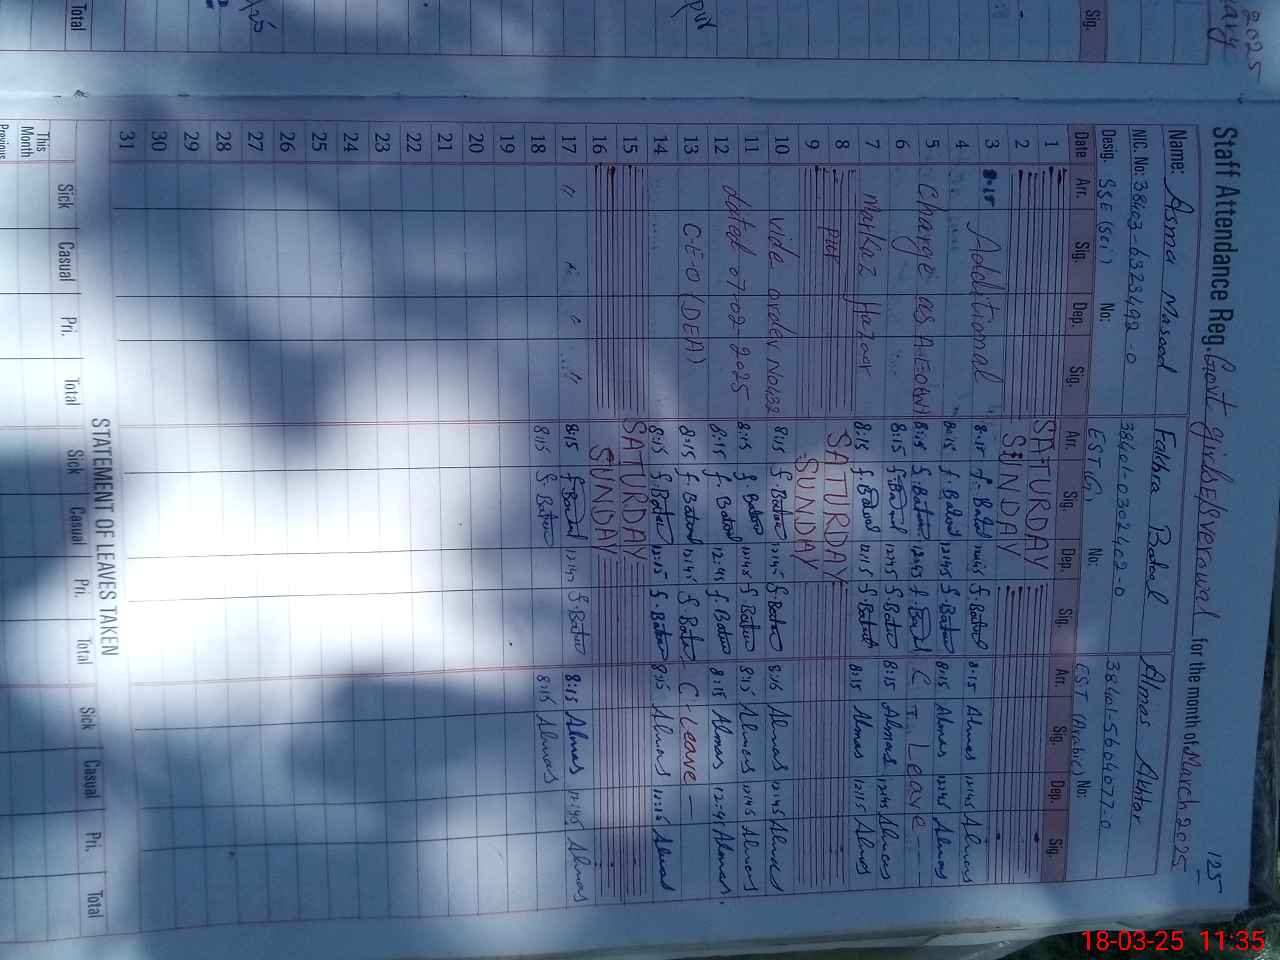 Staff Attendance Reg. Govt. girls for the month of March 2025 125
Name: Asma Masood Fakhra Batool Almas Akhtar
NIC. No: 38403-6323492-0 38401-0302402-0 38401-5604077-0
Desig. SSE (Sci) No: EST (G) No: EST (Arabic) No:
Date Arr. Sig. Dep. Sig. Arr. Sig. Dep. Sig. Arr. Sig. Dep. Sig.
1 SATURDAY
2 SUNDAY
3 8-15 Additional 8-15 f. Batool f. Batool 8-15 Almas 12:45 Almas
4 8:15 f. Batool 12:45 f. Batool 8:15 Almas 12:45 Almas
5 Charge as 8:15 f. Batool 12:45 f. Batool C Leave
6 8:15 f. Batool 12:45 f. Batool 8:15 Almas 12:45 Almas
7 Markaz 8:15 f. Batool 12:15 f. Batool 8:15 Almas 12:15 Almas
8 pur SATURDAY
9 SUNDAY
10 vide order No 8:15 f. Batool 12:45 f. Batool 8:15 Almas 12:45 Almas
11 8:15 f. Batool 12:45 f. Batool 8:15 Almas 12:45 Almas
12 dated 07-02-2025 8:15 f. Batool 12:45 f. Batool 8:15 Almas Almas
13 C-E-O (DEA) 8:15 f. Batool 12:45 f. Batool C-Leave -
14 8:15 f. Batool 12:15 f. Batool 8:15 Almas 12:15 Almas
15 SATURDAY
16 SUNDAY
17 " " 8:15 f. Batool 12:45 f. Batool 8:15 Almas 12:45 Almas
18 8:15 f. Batool 8:15 Almas
19
20
21
22
23
24
25
26
27
28
29
30
31
STATEMENT OF LEAVES TAKEN
Sick Casual Pri. Total Sick Casual Pri. Total Sick Casual Pri. Total
This Month
Previous
2025
Sig.
pur
Total
18-03-25 11:35